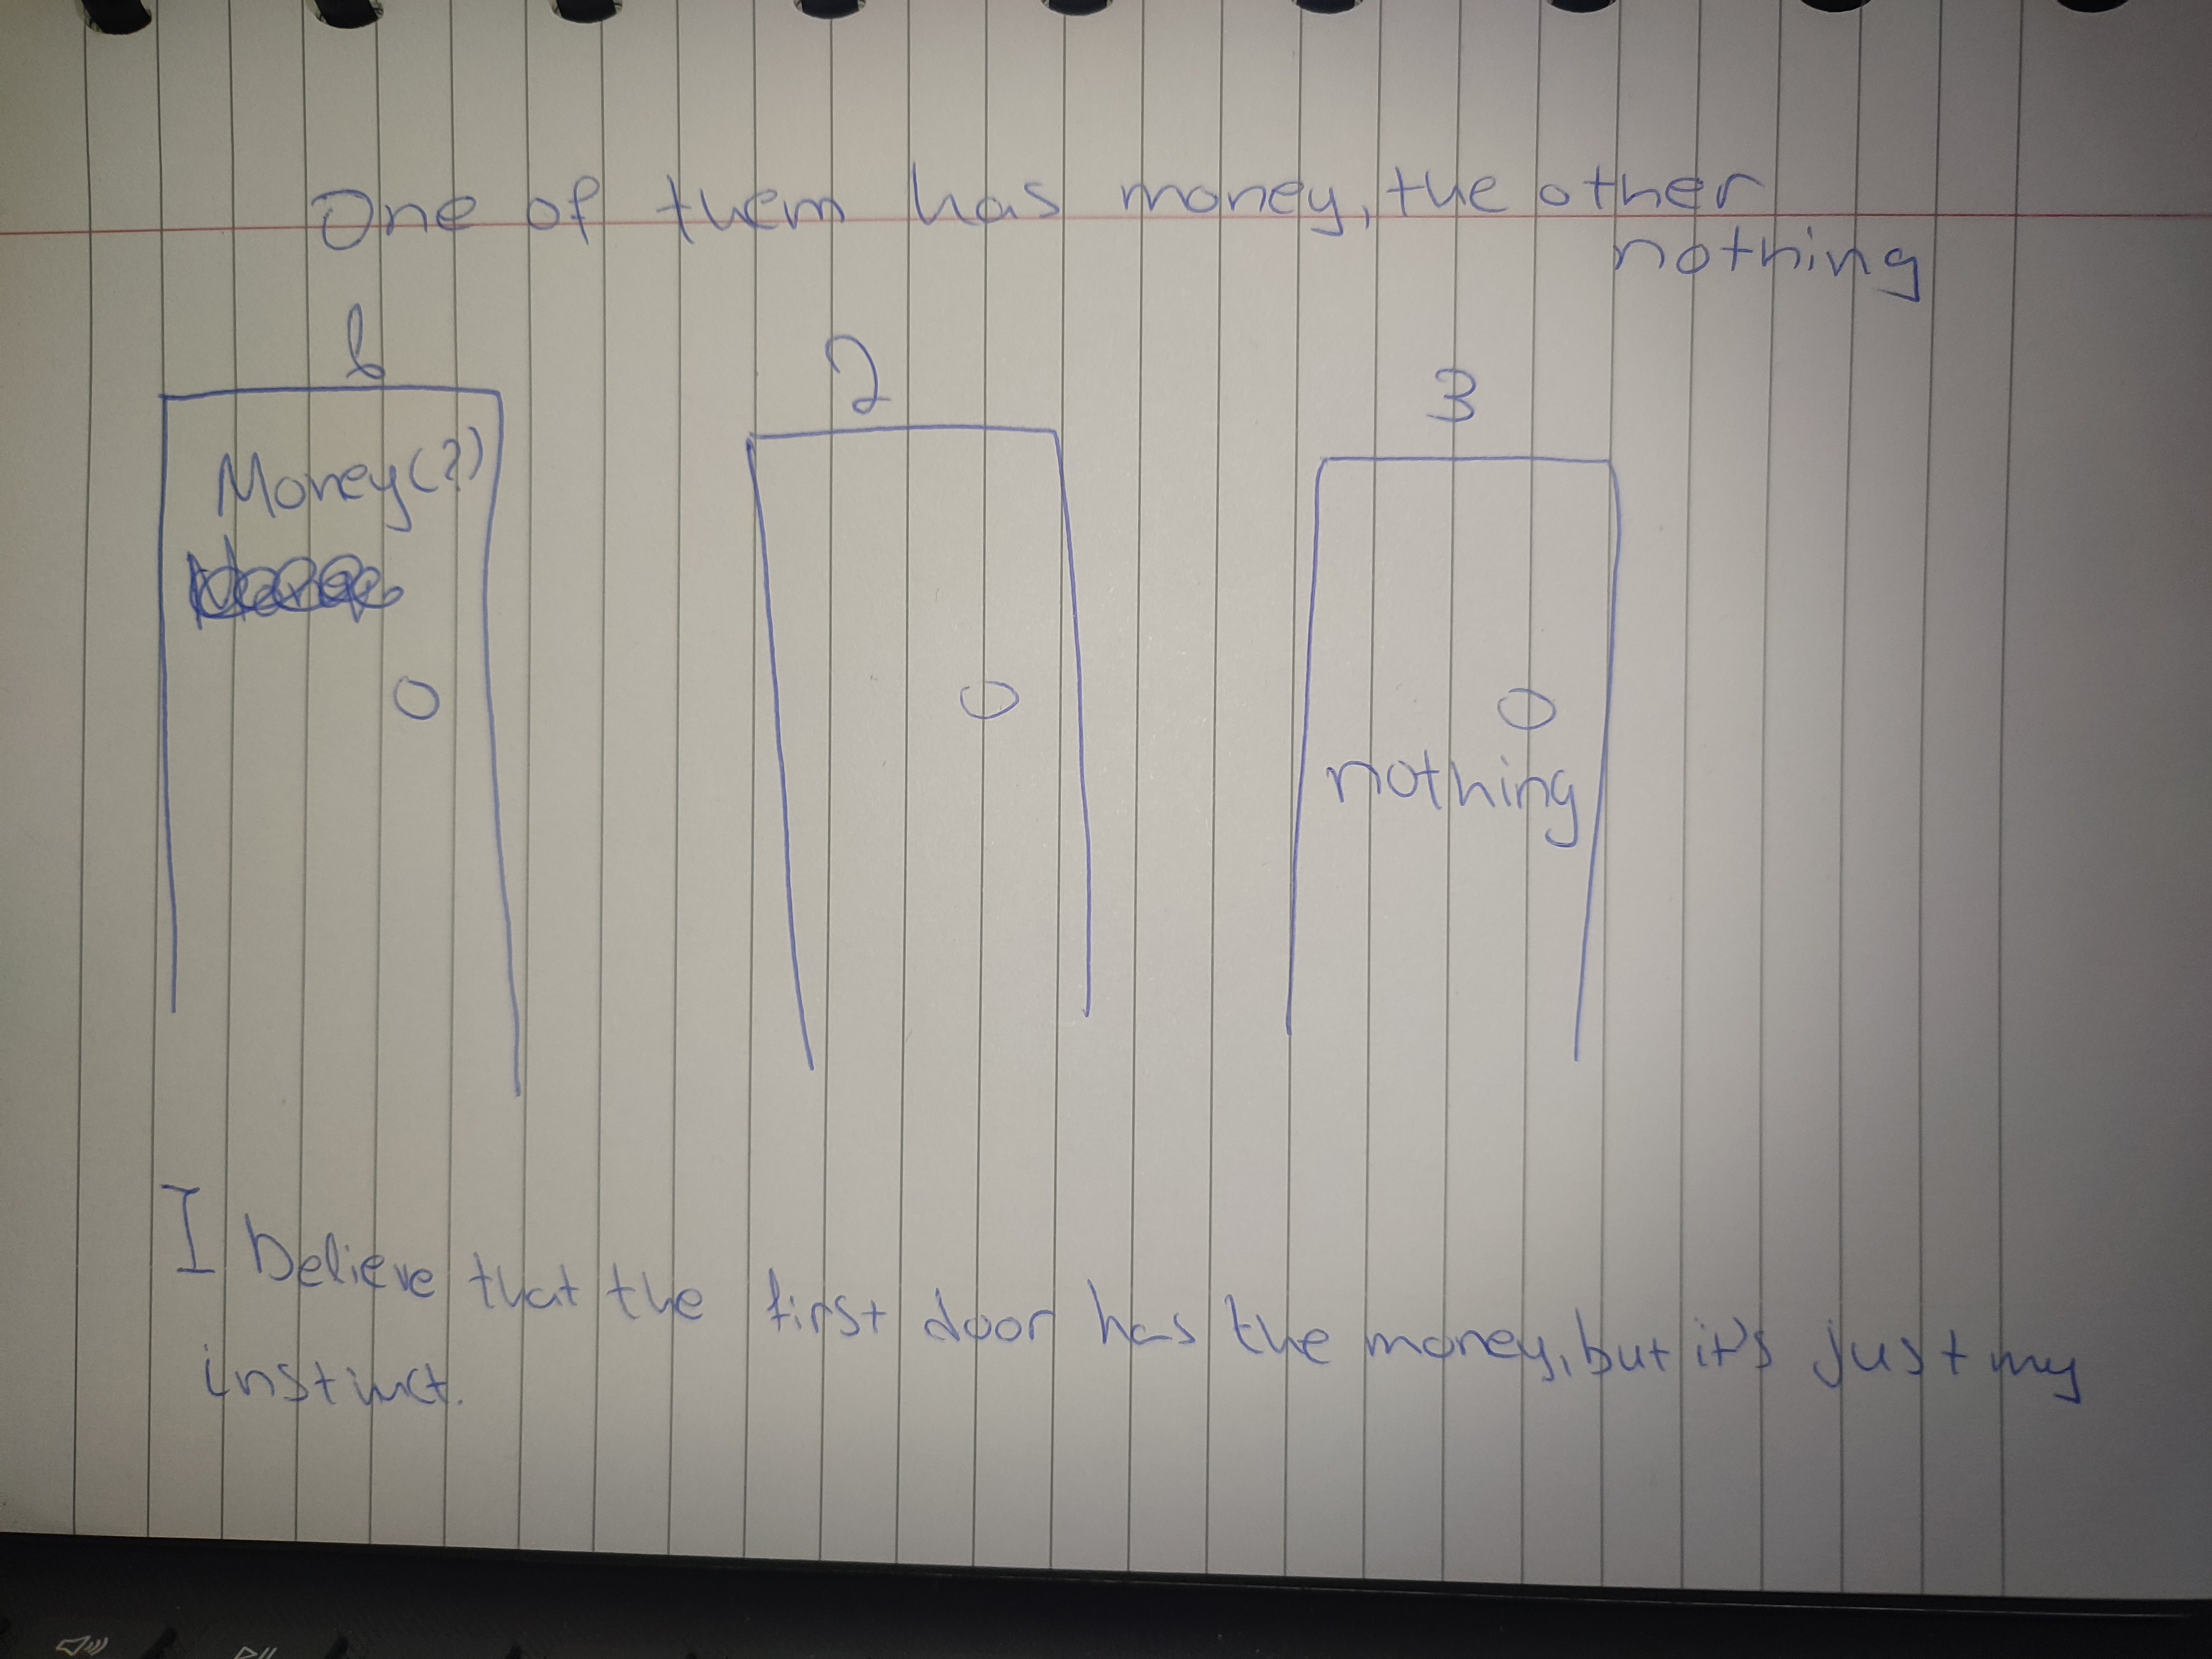 One of them has money, the other
nothing
2
3
Money(?)
nothing
I believe that the first door has the money, but it's just my
instinct.